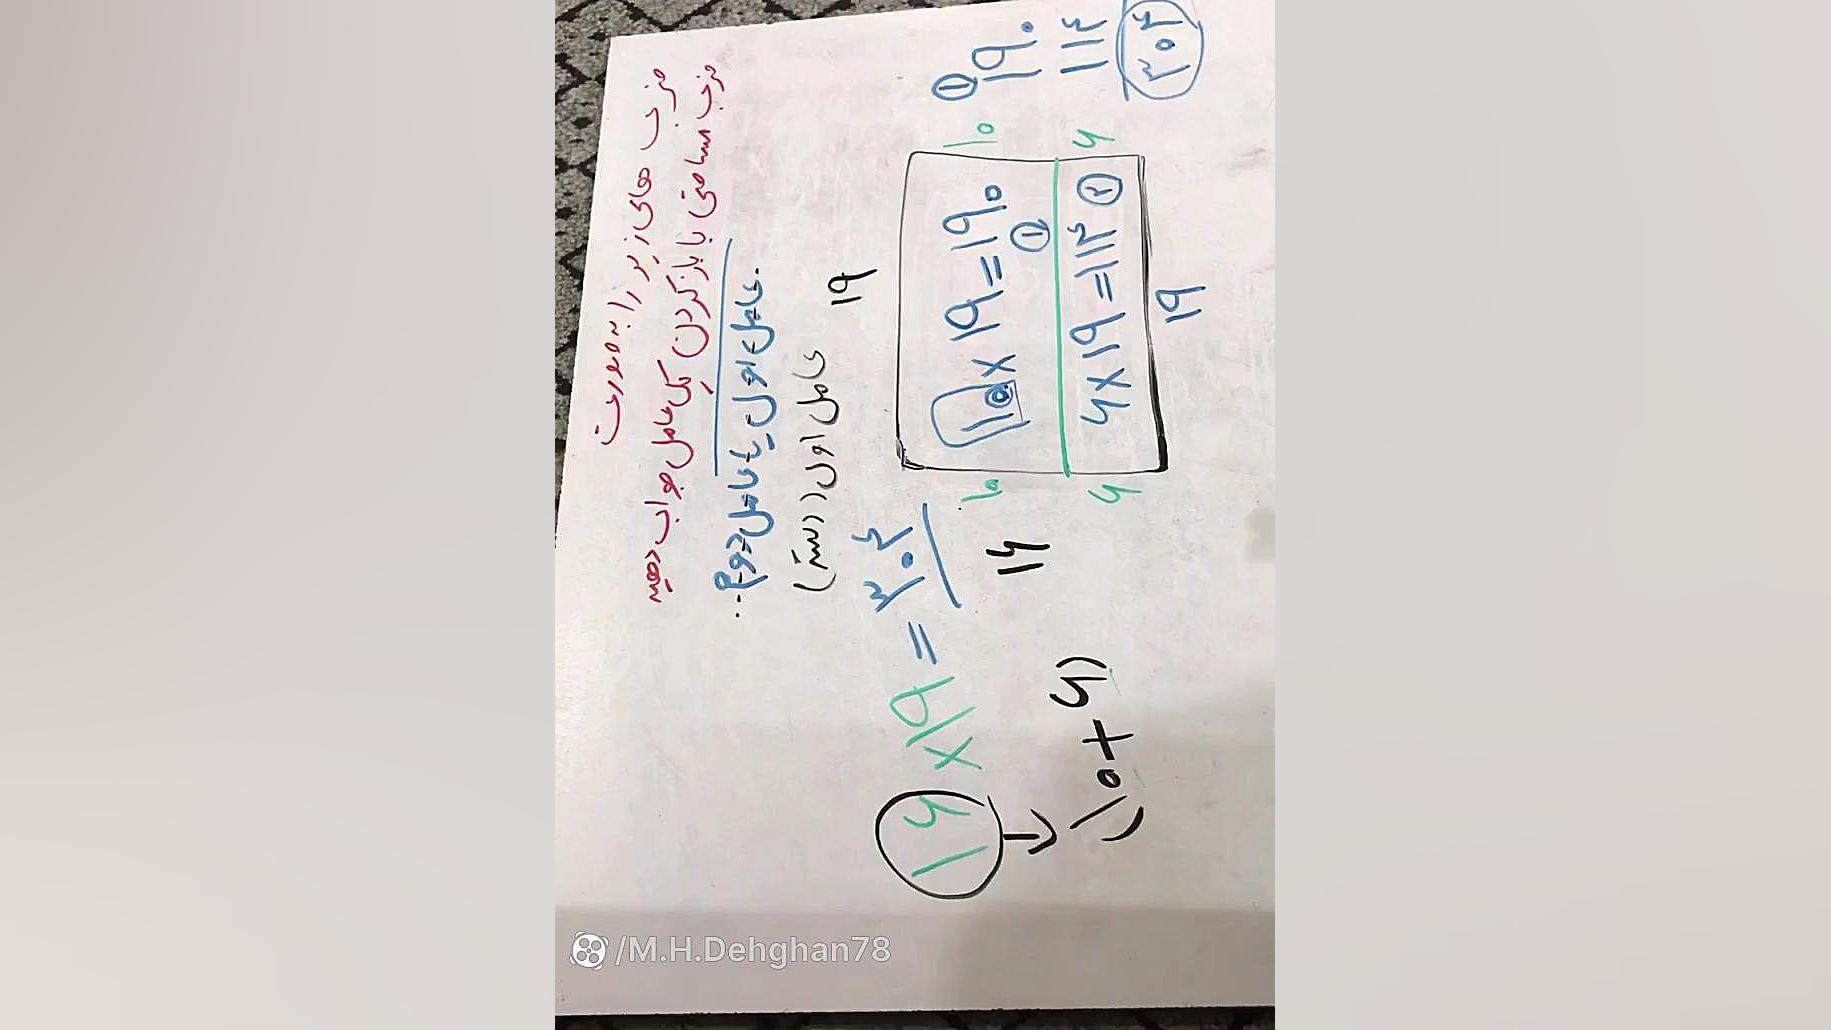 ضرب های زیر را به صورت
ضرب مساحتی با باز کردن یک عامل جواب دهید
عامل اول یا عامل دوم..
عامل اول (سَتر)
۱۶ × ۱۹ = ۳۰۴
(۱۰+۶)
۱۹
۱۶
۱۰
۱۰ × ۱۹ = ۱۹۰ ①
۱۰
۶
۶ × ۱۹ = ۱۱۴ ②
۶
۱۹
① ۱۹۰
۱۱۴
۳۰۴
/M.H.Dehghan78